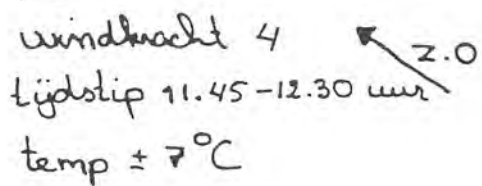 windkracht 4
z.o
tijdstip 11.45-12.30 uur
temp ± 7°C